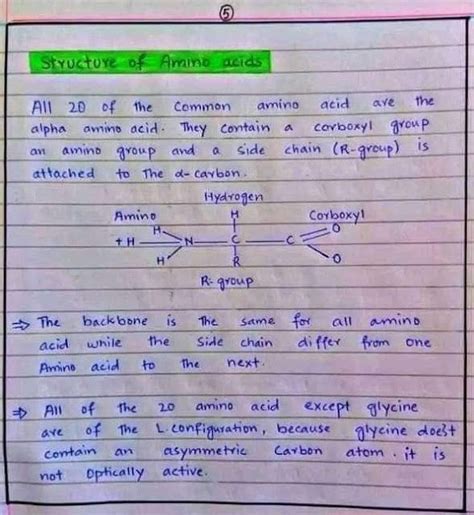 5
Structure of Amino acids
All 20 of the common amino acid are the
alpha amino acid. They contain a corboxyl group
an amino group and a side chain (R-group) is
attached to The α-carbon.
Hydrogen
Amino H Corboxyl
H O
+H N C C
H R O
R-group
⇒ The backbone is The same for all amino
acid while the side chain differ from one
Amino acid to the next.
⇒ All of the 20 amino acid except glycine
are of the L-configuration, because glycine does't
contain an asymmetric Carbon atom. it is
not Optically active.